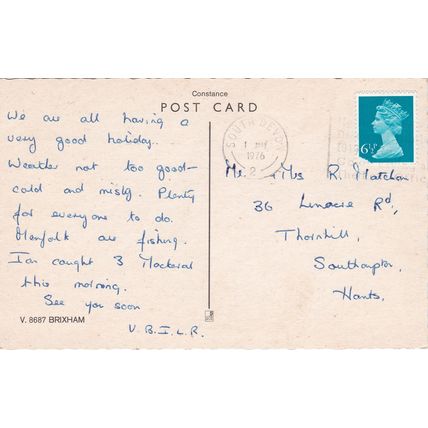 Constance
POST CARD
We are all having a
very good holiday.
Weather not too good-
cold and misty. Plenty
for everyone to do.
Menfolk are fishing.
Ian caught 3 Mackeral
this morning.
See you soon
V.B.I.L.R.
V. 8687 BRIXHAM
SOUTH DEVON
1976
2
6½P
Mr. Mrs R. Matcham
36 Linacre Rd,
Thornhill,
Southampton,
Hants.